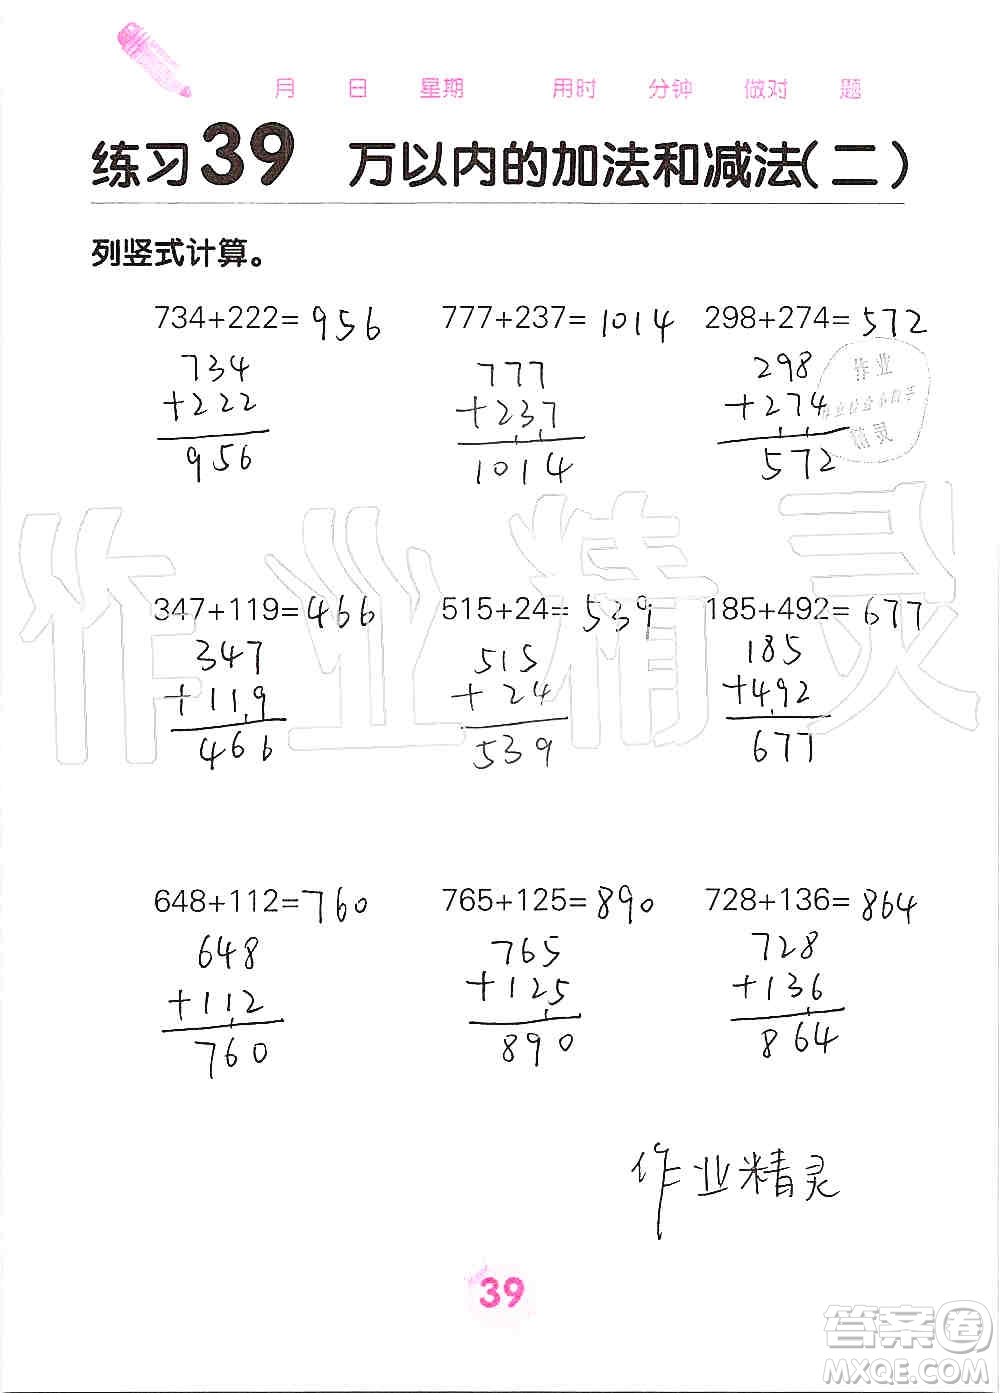 月 日 星期 用时 分钟 做对 题
练习39 万以内的加法和减法(二)
列竖式计算。
734+222=956 777+237=1014 298+274=572
734 777 298
+222 +237 +274
956 1014 572
作业
精灵
作业精灵
347+119=466 515+24=539 185+492=677
347 515 185
+119 +24 +492
466 539 677
648+112=760 765+125=890 728+136=864
648 765 728
+112 +125 +136
760 890 864
作业精灵
39
答案圈
MXQE.COM